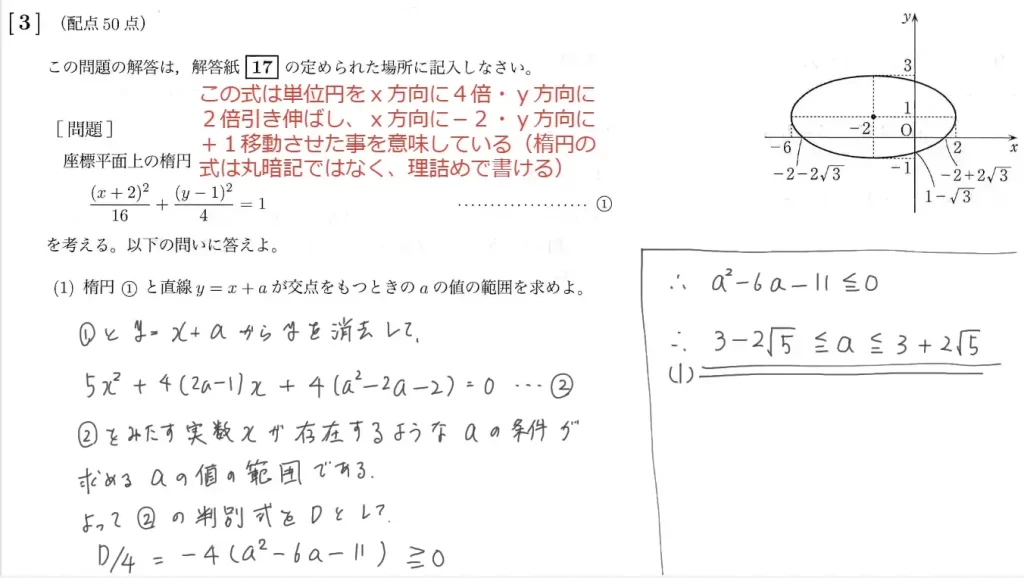 [3] (配点50点)
この問題の解答は，解答紙 17 の定められた場所に記入しなさい。
この式は単位円をｘ方向に４倍・ｙ方向に
２倍引き伸ばし、ｘ方向に－２・ｙ方向に
＋１移動させた事を意味している（楕円の
式は丸暗記ではなく、理詰めで書ける）
[問題]
座標平面上の楕円
(x+2)²/16 + (y−1)²/4 = 1 ………………… ①
を考える。以下の問いに答えよ。
(1) 楕円 ① と直線 y = x + a が交点をもつときの a の値の範囲を求めよ。
①と y = x + a から y を消去して，
5x² + 4(2a−1)x + 4(a²−2a−2) = 0 … ②
②をみたす実数 x が存在するような a の条件が
求める a の値の範囲である.
よって ② の判別式を D として，
D/4 = −4(a²−6a−11) ≧ 0
y
3
1
−2
O
−6
2
x
−2−2√3
−1
−2+2√3
1−√3
∴ a²−6a−11 ≦ 0
∴ 3−2√5 ≦ a ≦ 3+2√5
(1)